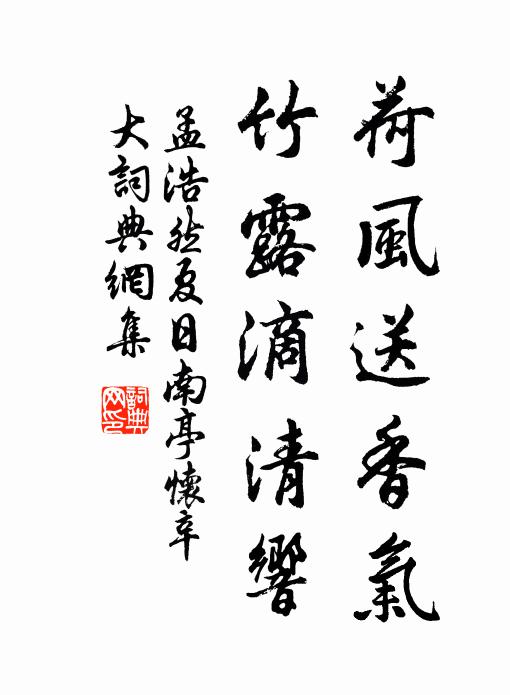 荷風送香氣
竹露滴清響
孟浩然夏日南亭懷辛
大詞典網集
詞典网印